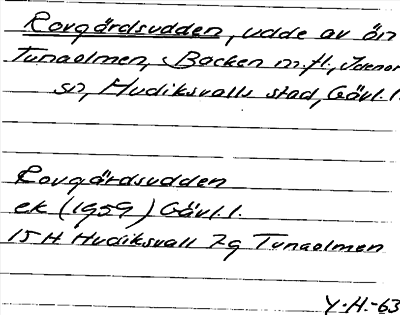 Rovgårdsudden, udde av ön
Tunaolmen, Backen m.fl., Idenor
sn, Hudiksvalls stad, Gävl.l.
Rovgårdsudden
ek (1959) Gävl.l.
15 H Hudiksvall 7g Tunaolmen
Y.H.-63